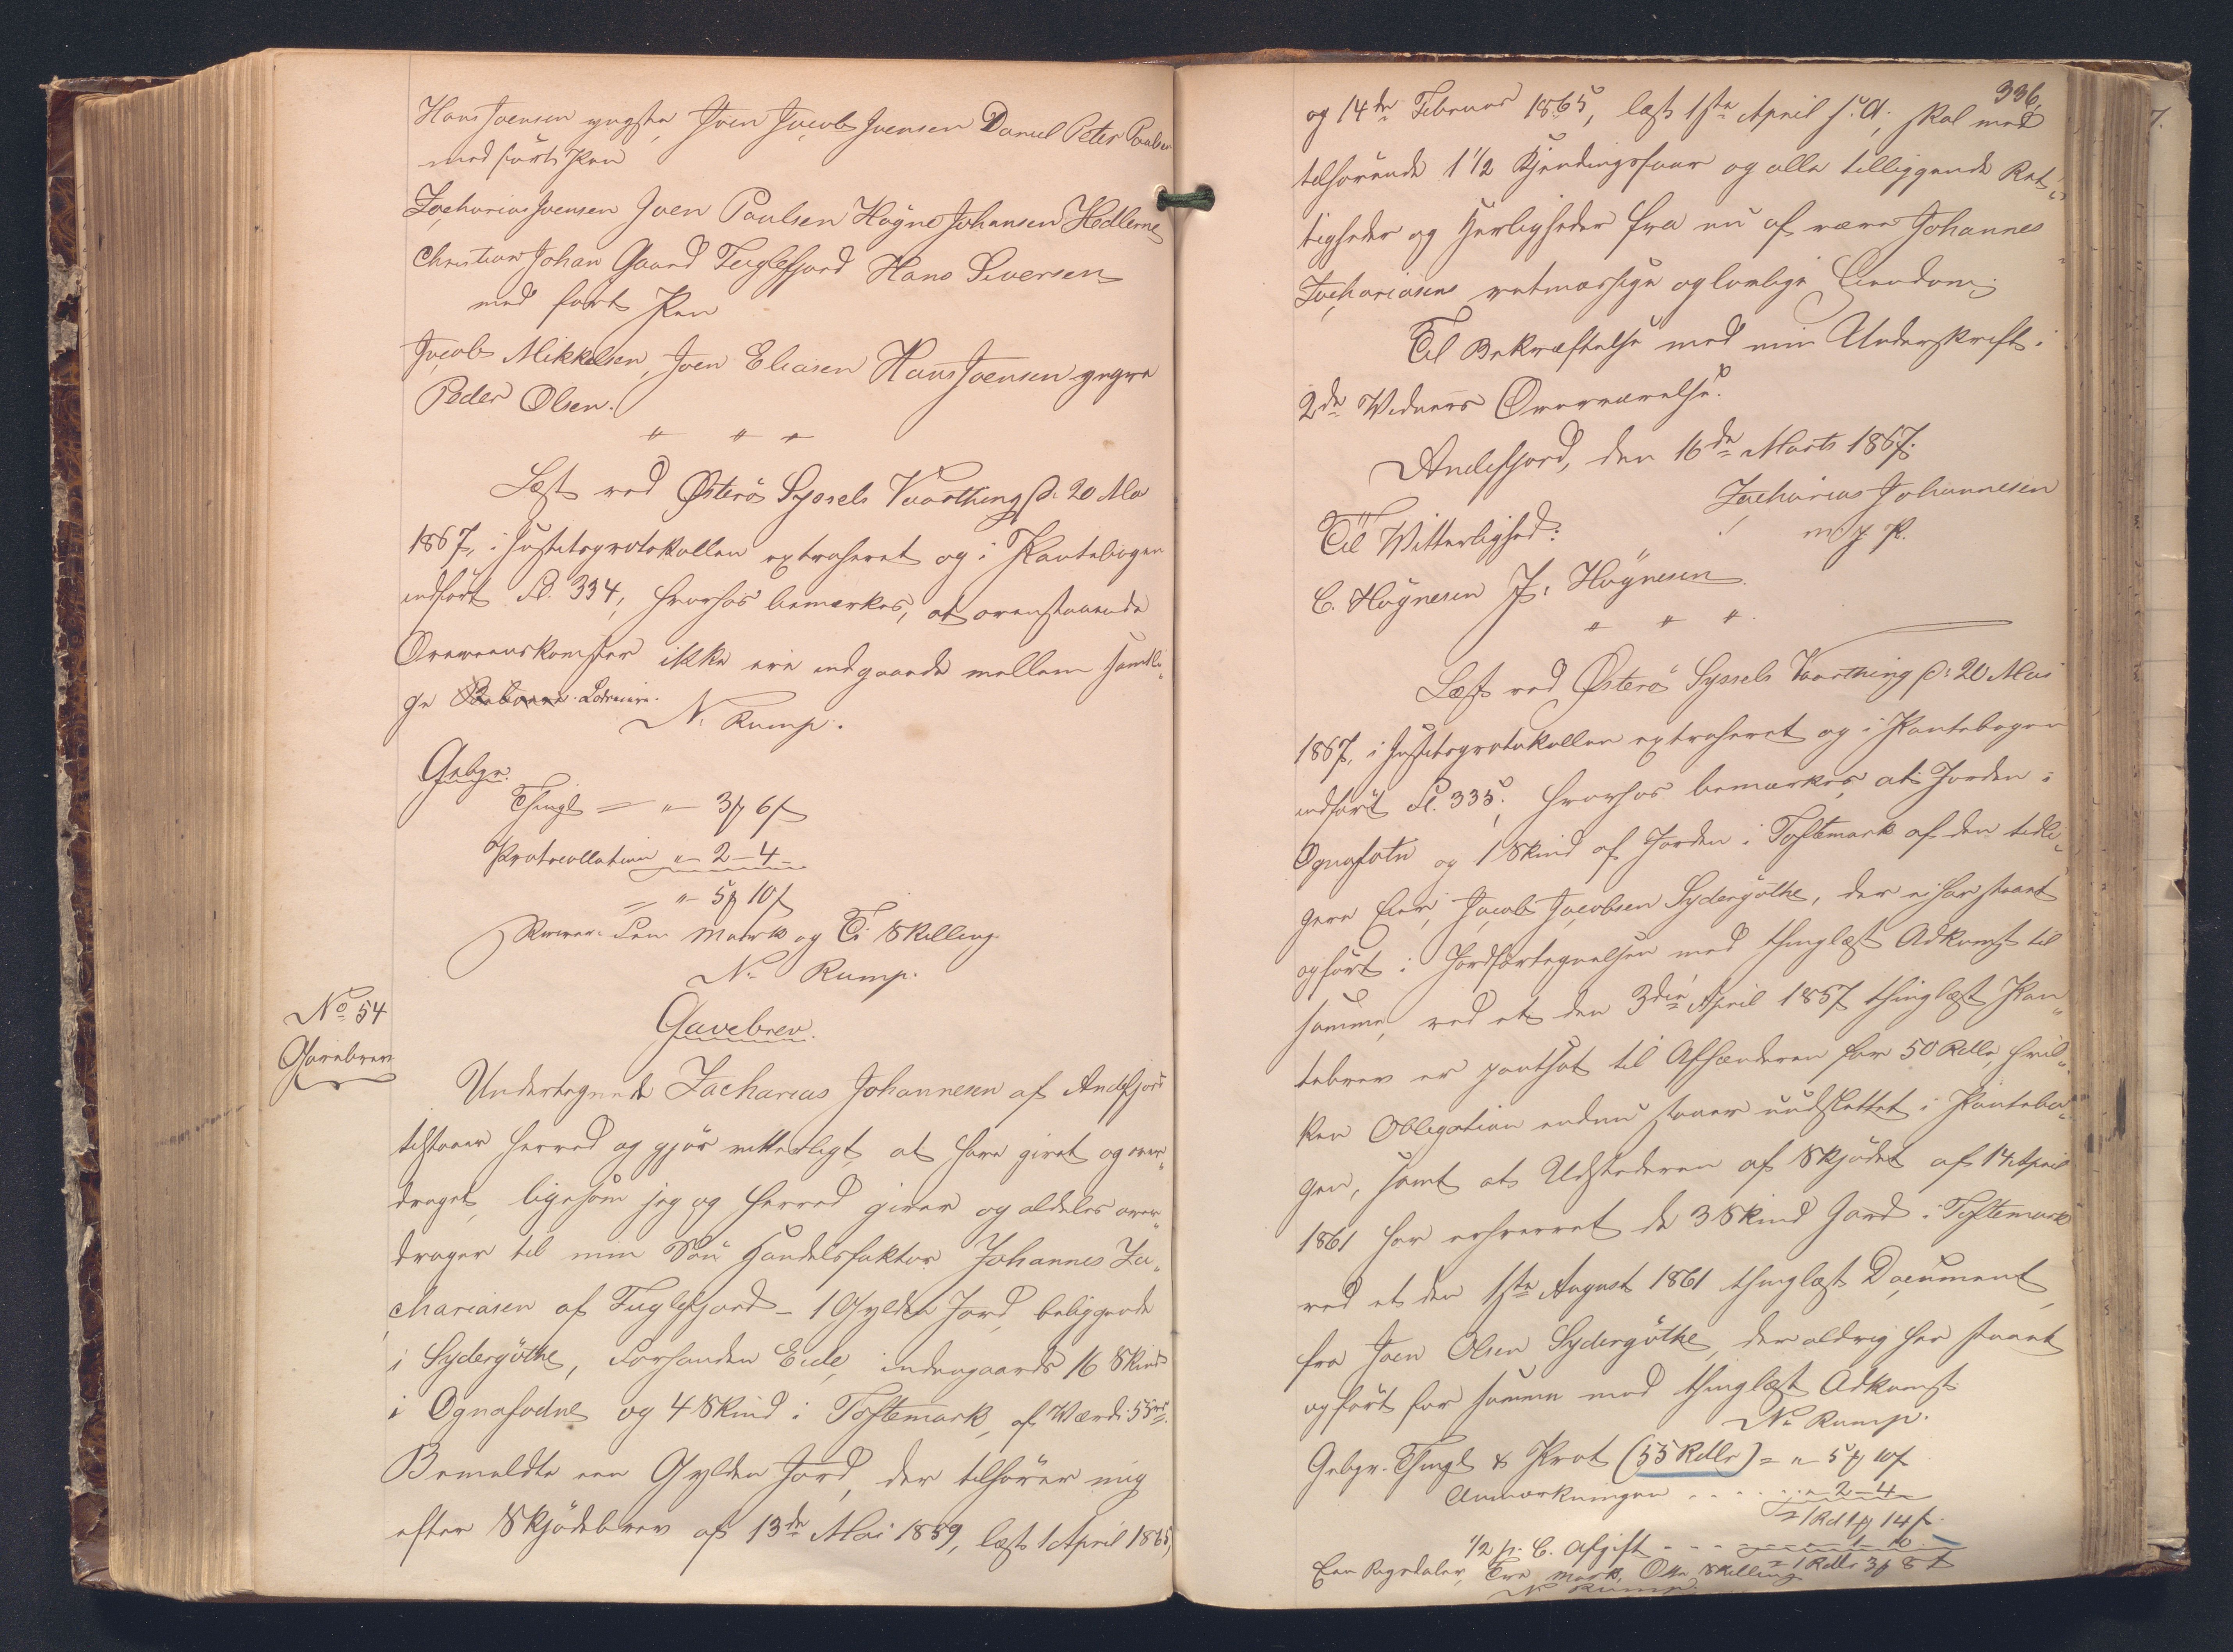 Hans Joensen yngste, Joen Jacob Joensen Daniel Peter Poulsen
medført Pen
Zacharias Joensen Joen Poulsen Høgne Johansen Hedlerne
Christian Johan Gaard Fuglefjord Hans Siversen
medført Pen
Jacob Mikkelsen, Joen Eliasen Hans Joensen yngre
Peder Olsen.
" " "
Læst ved Østerø Syssels Vaarthing d: 20 Mai
1867, i Justitsprotokollen extraheret og i Pantebogen
indført Fol. 334, hvorhos bemærkes, at ovenstaaende
Overeenskomster ikke ere indgaaede mellem samtli„
ge Beboere. Lodseiere.
N. Rump.
Gebyr.
Thingl = " 3 ꝑ 6 ꝭ
Protocollation " – 2 – 4 –
= " – 5 ꝑ 10 ꝭ
skriver Fem Mark og Ti Skilling
N. Rump.
No 54
Gavebrev
Gavebrev.
Undertegnede Zacharias Johannesen af Andefjord
tilstaaer herved og gjør vitterligt, at have givet og over„
draget, ligesom jeg og herved giver og aldeles over„
drager til min Søn Handelsfaktor Johannes Za„
chariasen af Fuglefjord – 1 Gylden Jord, beliggende
i Sydergøthe, Forhanden Eide, indengaards 16 Skind
i Ognafodne og 4 Skind i Toftemark, af Værdi 55 rd.
Bemeldte een Gylden Jord, der tilhører mig
efter Skjødebrev af 13de Mai 1859, læst 1 April 1865,
336.
og 14de Februar 1865, læst 1ste April s. A., skal med
tilhørende 1 1/2 Kjendingsfaar og alle tilliggende Ret„
tigheder og Herligheder fra nu af være Johannes
Zachariasens retmæssige og lovlige Eiendom.
Til Bekræftelse med min Underskrift i
2de Vidners Overværelse.
Andefjord, den 16de Marts 1867.
Zacharias Johannesen
m f P.
Til Vitterlighed:
C. Høgnesen J. Høgnesen.
" " "
Læst ved Østerø Syssels Vaarthing d: 20 Mai
1867, i Justitsprotokollen extraheret og i Pantebogen
indført Fol. 335, hvorhos bemærkes, at Jorden i
Ognafotn og 1 Skind af Jorden i Toftemark af den tidli„
gere Eier, Jacob Jacobsen Sydergøthe, der ei har staaet
opført i Jordfortegnelsen med thinglæst Adkomst til
samme, ved et den 3die April 1857 thinglæst Pan„
tebrev er pantsat til Afhænderen for 50 Rdlr, hvil„
ken Obligation endnu staaer uudslettet i Pantebo„
gen, samt at Udstederen af Skjødet af 14 April
1861 har erhvervet de 3 Skind Jord i Toftemark
ved et den 1ste August 1861 thinglæst Document
fra Joen Olsen Sydergøthe, der aldrig har staaet
opført for samme med thinglæst Adkomst.
N. Rump.
Gebyr. Thingl & Prot (55 Rdlr) = " 5 ꝑ 10 ꝭ
Anmærkningen . . . . . " 2 – 4
= 1 Rd 1 ꝑ 14 ꝭ.
1/2 p. C. Afgift . . . 1 – 10.
= 1 Rdlr 3 ꝑ 8 ꝭ
Een Rigsdaler, Tre Mark, Otte Skilling
N. Rump.